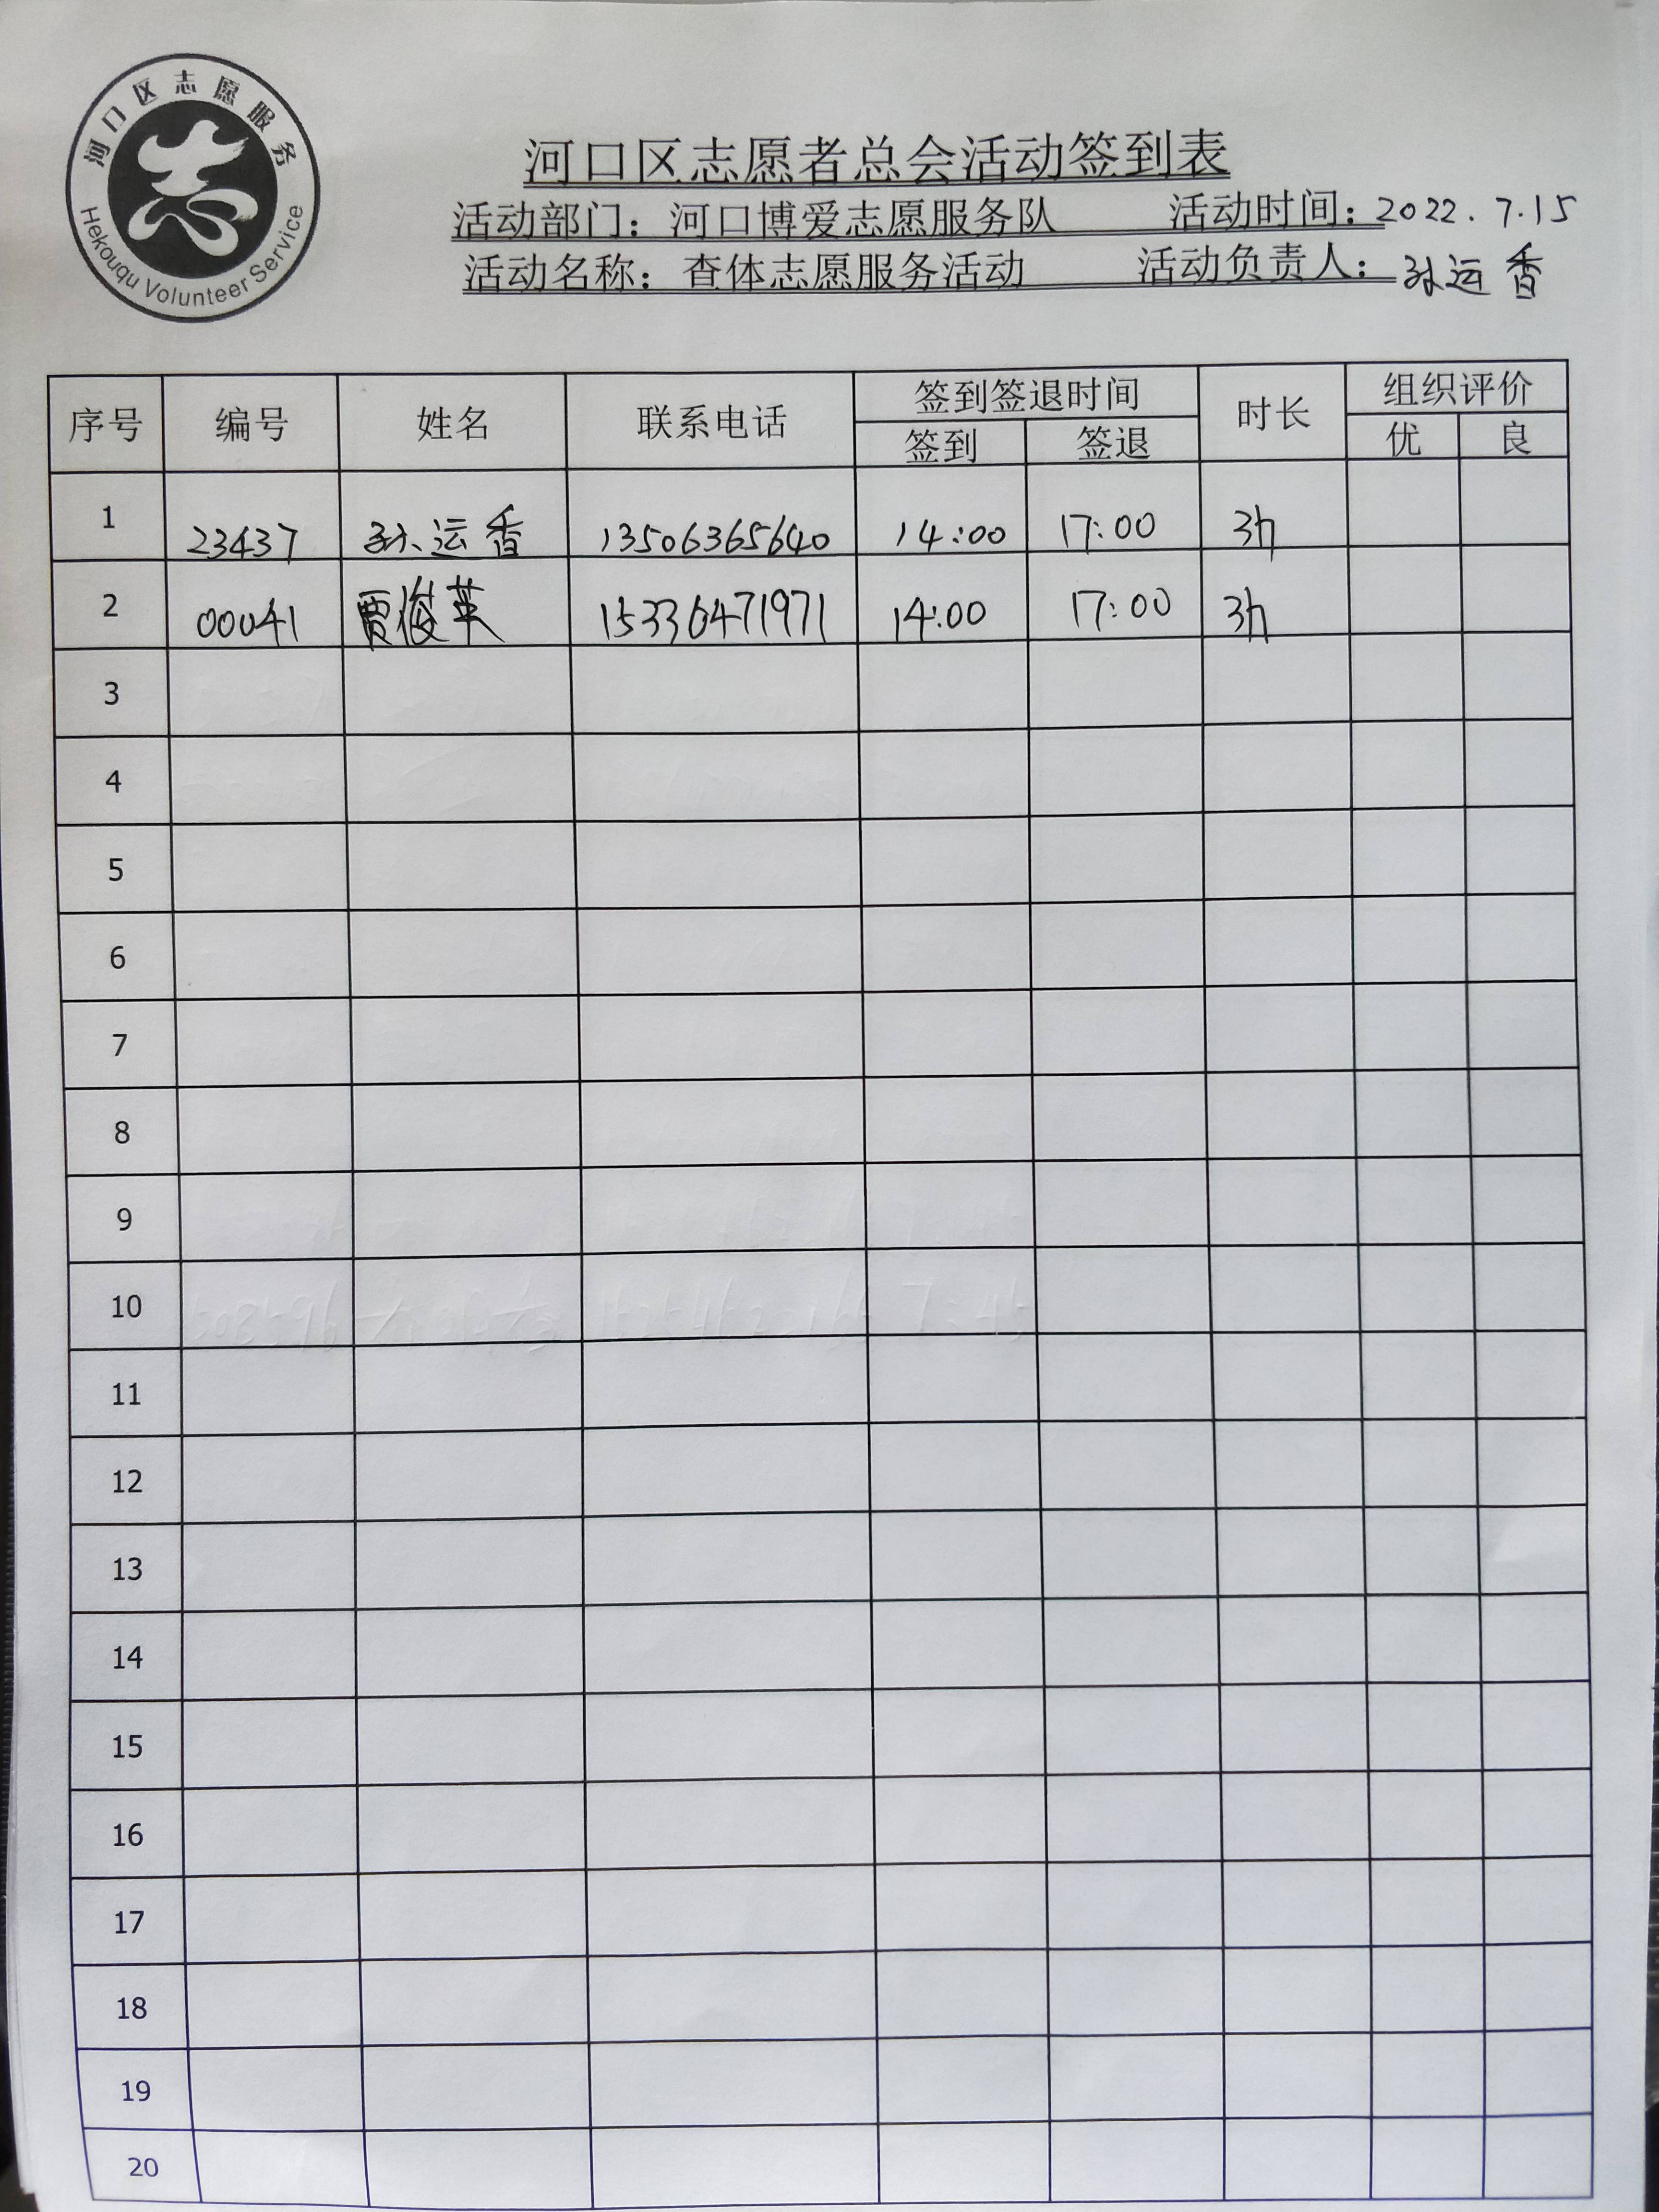 河口区志愿服务
Hekouqu Volunteer Service
河口区志愿者总会活动签到表
活动部门：河口博爱志愿服务队 活动时间：2022.7.15
活动名称：查体志愿服务活动 活动负责人：孙运香
序号 编号 姓名 联系电话 签到签退时间 时长 组织评价
签到 签退 优 良
1 23437 孙运香 13506365640 14:00 17:00 3h
2 00041 贾俊英 15336471971 14:00 17:00 3h
3
4
5
6
7
8
9
10
11
12
13
14
15
16
17
18
19
20